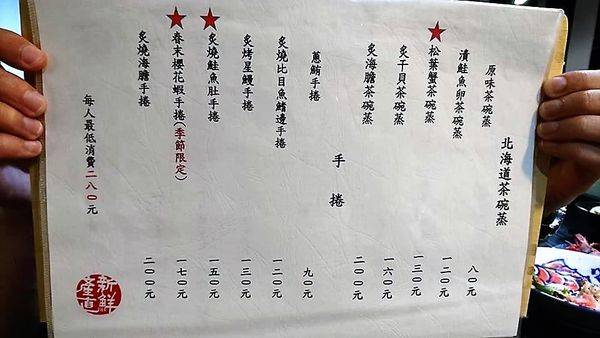 北海道茶碗蒸
原味茶碗蒸 八〇元
漬鮭魚卵茶碗蒸 一二〇元
松葉蟹茶碗蒸 一三〇元
炙干貝茶碗蒸 一六〇元
炙海膽茶碗蒸 二〇〇元
手捲
蔥鮪手捲 九〇元
炙燒比目魚鰭邊手捲 一二〇元
炙烤星鰻手捲 一三〇元
炙燒鮭魚肚手捲 一五〇元
春末櫻花蝦手捲(季節限定) 一七〇元
炙燒海膽手捲 二〇〇元
每人最低消費二八〇元
新鮮
產直